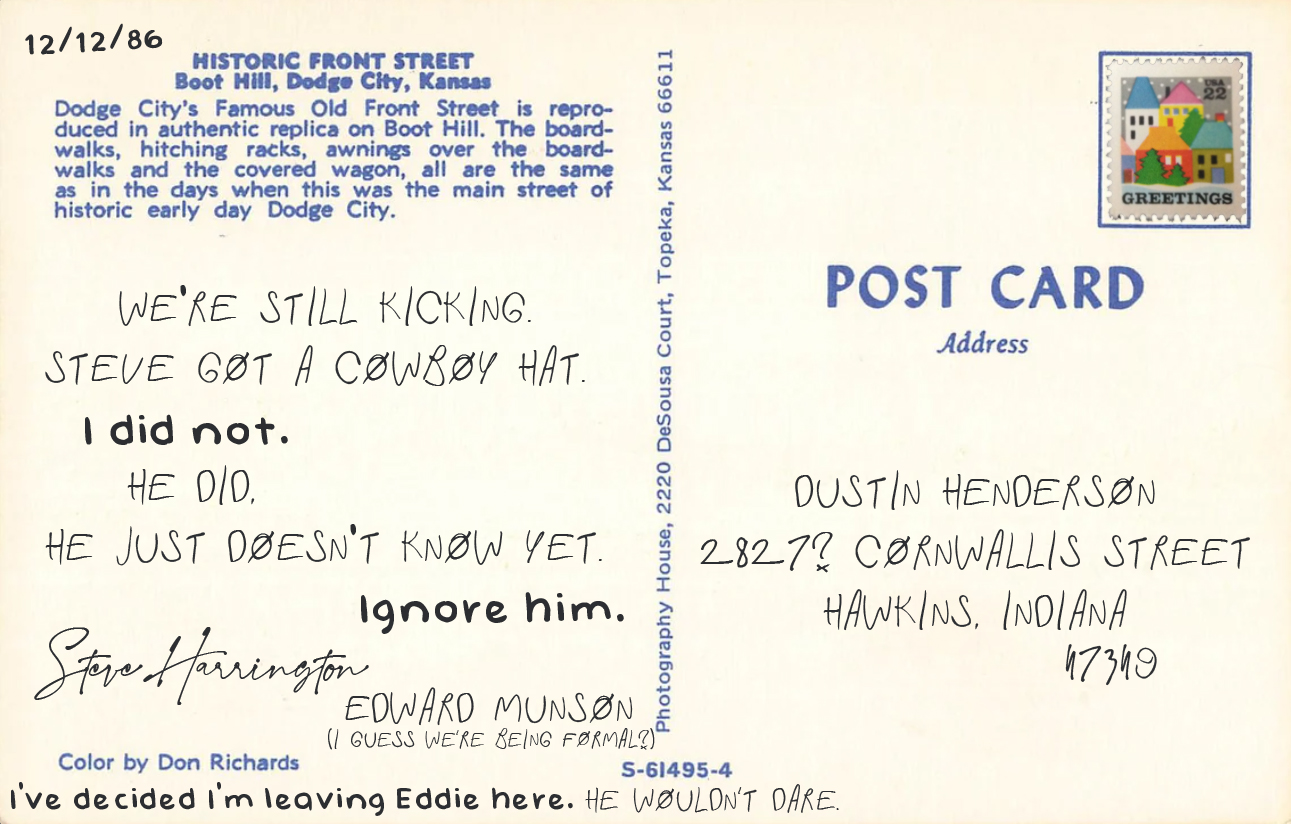 12/12/86
HISTORIC FRONT STREET
Boot Hill, Dodge City, Kansas
Dodge City's Famous Old Front Street is repro-
duced in authentic replica on Boot Hill. The board-
walks, hitching racks, awnings over the board-
walks and the covered wagon, all are the same
as in the days when this was the main street of
historic early day Dodge City.
WE'RE STILL KICKING.
STEVE GØT A CØWBØY HAT.
I did not.
HE DID.
HE JUST DØESN'T KNØW YET.
Ignore him.
Steve Harrington
EDWARD MUNSØN
(I GUESS WE'RE BEING FØRMAL?)
Color by Don Richards
S-61495-4
I've decided I'm leaving Eddie here. HE WØULDN'T DARE.
Photography House, 2220 DeSousa Court, Topeka, Kansas 66611
USA
22
GREETINGS
POST CARD
Address
DUSTIN HENDERSØN
2827? CØRNWALLIS STREET
HAWKINS, INDIANA
47349